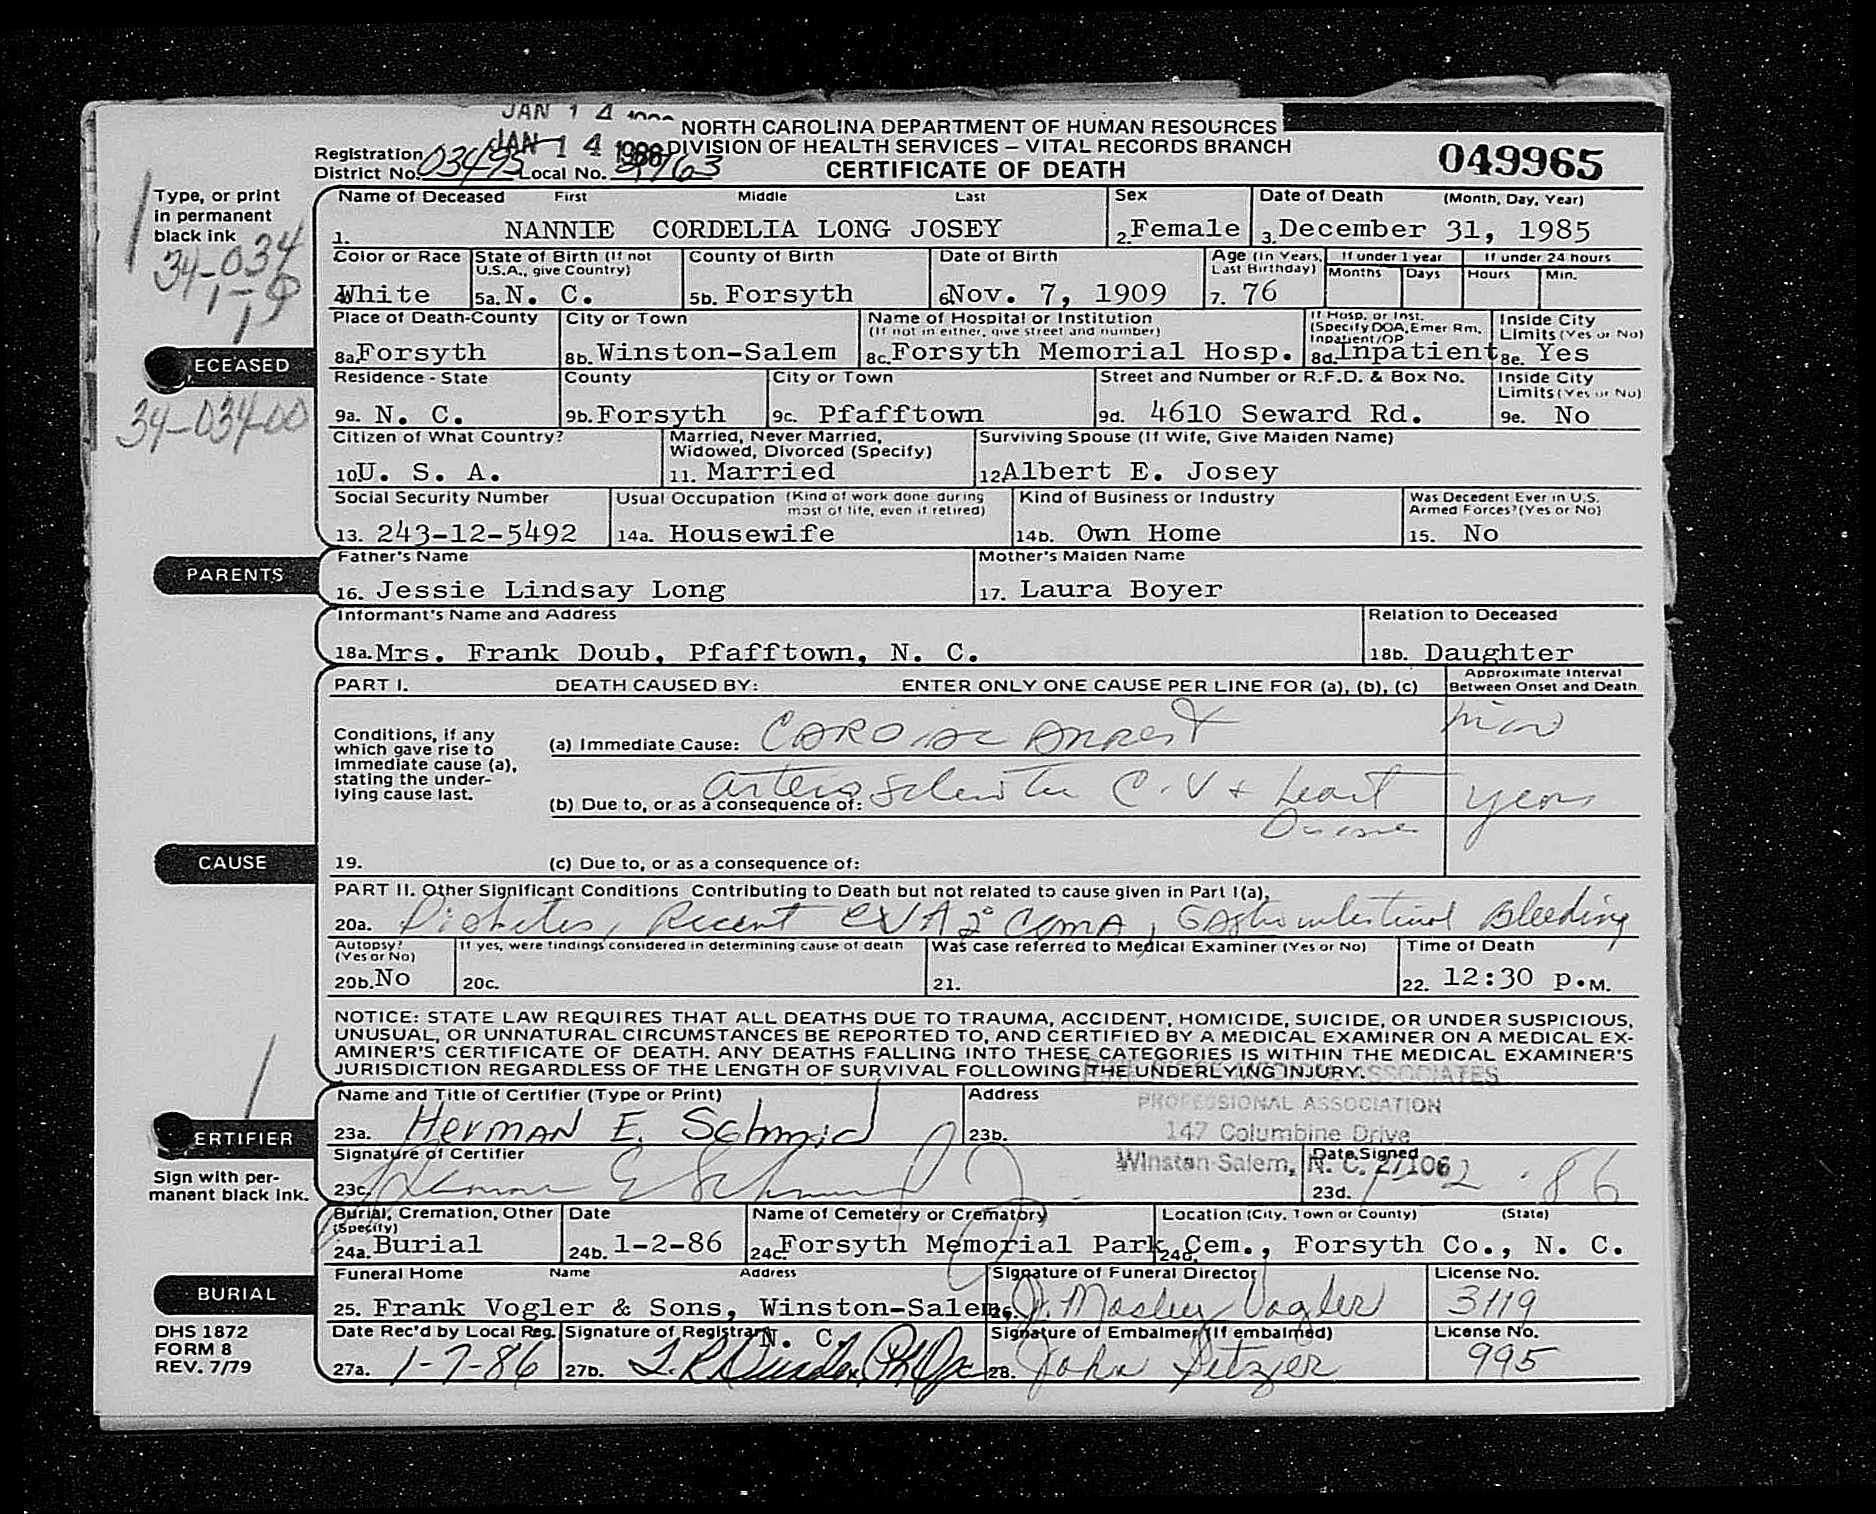 JAN 1 4
JAN 1 4 1986
NORTH CAROLINA DEPARTMENT OF HUMAN RESOURCES
DIVISION OF HEALTH SERVICES – VITAL RECORDS BRANCH
CERTIFICATE OF DEATH
049965
Registration District No. 03495 Local No.
Type, or print in permanent black ink
34-034
1-9
34-034-00
Name of Deceased First Middle Last
1. NANNIE CORDELIA LONG JOSEY
Sex
2. Female
Date of Death (Month, Day, Year)
3. December 31, 1985
Color or Race
4. White
State of Birth (If not U.S.A., give Country)
5a. N. C.
County of Birth
5b. Forsyth
Date of Birth
6. Nov. 7, 1909
Age (In Years, Last Birthday)
7. 76
If under 1 year
Months Days
If under 24 hours
Hours Min.
ECEASED
Place of Death-County
8a. Forsyth
City or Town
8b. Winston-Salem
Name of Hospital or Institution
(If not in either, give street and number)
8c. Forsyth Memorial Hosp.
If Hosp. or Inst. (Specify DOA, Emer Rm, Inpatient/OP
8d. Inpatient
Inside City Limits (Yes or No)
8e. Yes
Residence - State
9a. N. C.
County
9b. Forsyth
City or Town
9c. Pfafftown
Street and Number or R.F.D. & Box No.
9d. 4610 Seward Rd.
Inside City Limits (Yes or No)
9e. No
Citizen of What Country?
10. U. S. A.
Married, Never Married, Widowed, Divorced (Specify)
11. Married
Surviving Spouse (If Wife, Give Maiden Name)
12. Albert E. Josey
Social Security Number
13. 243-12-5492
Usual Occupation (Kind of work done during most of life, even if retired)
14a. Housewife
Kind of Business or Industry
14b. Own Home
Was Decedent Ever in U.S. Armed Forces? (Yes or No)
15. No
PARENTS
Father's Name
16. Jessie Lindsay Long
Mother's Maiden Name
17. Laura Boyer
Informant's Name and Address
18a. Mrs. Frank Doub, Pfafftown, N. C.
Relation to Deceased
18b. Daughter
PART I. DEATH CAUSED BY: ENTER ONLY ONE CAUSE PER LINE FOR (a), (b), (c)
Approximate Interval Between Onset and Death
Conditions, if any which gave rise to immediate cause (a), stating the underlying cause last.
(a) Immediate Cause: CARDIAC ARREST min
(b) Due to, or as a consequence of: arteriosclerotic C.V + heart Disease years
CAUSE
19. (c) Due to, or as a consequence of:
PART II. Other Significant Conditions Contributing to Death but not related to cause given in Part I(a),
20a. Diabetes, Recent CVA 2° Coma, Gastrointestinal Bleeding
Autopsy? (Yes or No)
20b. No
If yes, were findings considered in determining cause of death
20c.
Was case referred to Medical Examiner (Yes or No)
21.
Time of Death
22. 12:30 P.M.
NOTICE: STATE LAW REQUIRES THAT ALL DEATHS DUE TO TRAUMA, ACCIDENT, HOMICIDE, SUICIDE, OR UNDER SUSPICIOUS,
UNUSUAL, OR UNNATURAL CIRCUMSTANCES BE REPORTED TO, AND CERTIFIED BY A MEDICAL EXAMINER ON A MEDICAL EX-
AMINER'S CERTIFICATE OF DEATH. ANY DEATHS FALLING INTO THESE CATEGORIES IS WITHIN THE MEDICAL EXAMINER'S
JURISDICTION REGARDLESS OF THE LENGTH OF SURVIVAL FOLLOWING THE UNDERLYING INJURY.
ASSOCIATES
Name and Title of Certifier (Type or Print)
23a. Herman E. Schmid
Address
23b. PROFESSIONAL ASSOCIATION
147 Columbine Drive
Winston-Salem, N. C. 27106
ERTIFIER
Sign with permanent black ink.
Signature of Certifier
23c. Herman E Schmid
Date Signed
23d. 1-2-86
Burial, Cremation, Other (Specify)
24a. Burial
Date
24b. 1-2-86
Name of Cemetery or Crematory
24c. Forsyth Memorial Park Cem.,
Location (City, Town or County) (State)
24d. Forsyth Co., N. C.
BURIAL
Funeral Home Name Address
25. Frank Vogler & Sons, Winston-Salem, N. C.
Signature of Funeral Director
26. J. Mosley Vogler
License No.
3119
DHS 1872
FORM 8
REV. 7/79
Date Rec'd by Local Reg.
27a. 1-7-86
Signature of Registrar
27b.
Signature of Embalmer (If embalmed)
28. John Setzer
License No.
995